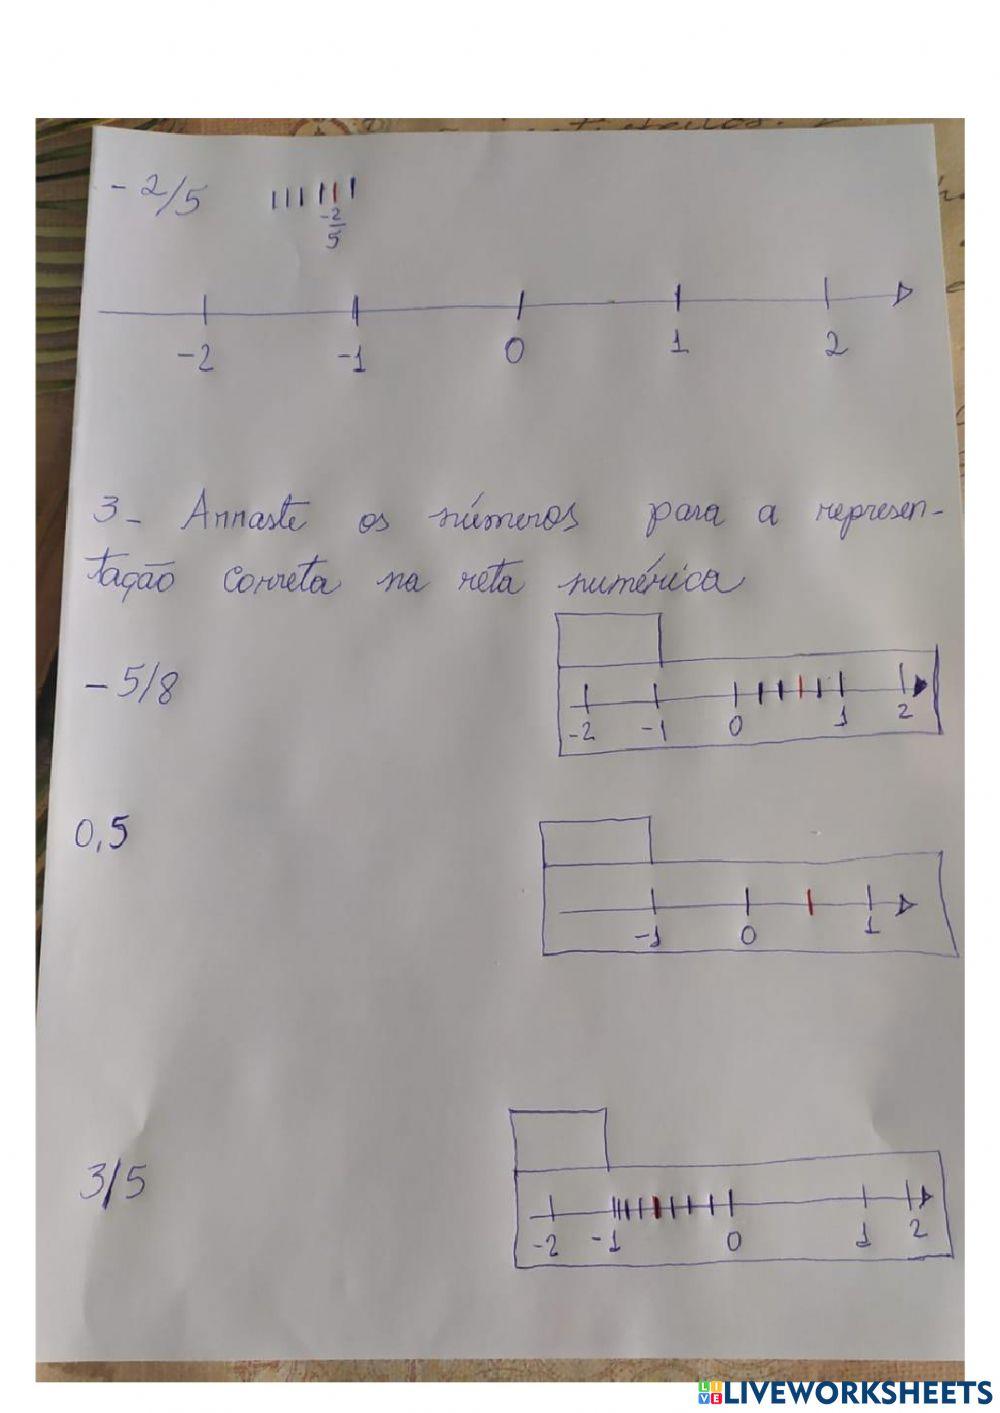 -2/5
-2
5
-2 -1 0 1 2
3- Arraste os números para a represen-
tação correta na reta numérica
-5/8
-2 -1 0 1 2
0,5
-1 0 1
3/5
-2 -1 0 1 2
LIVEWORKSHEETS